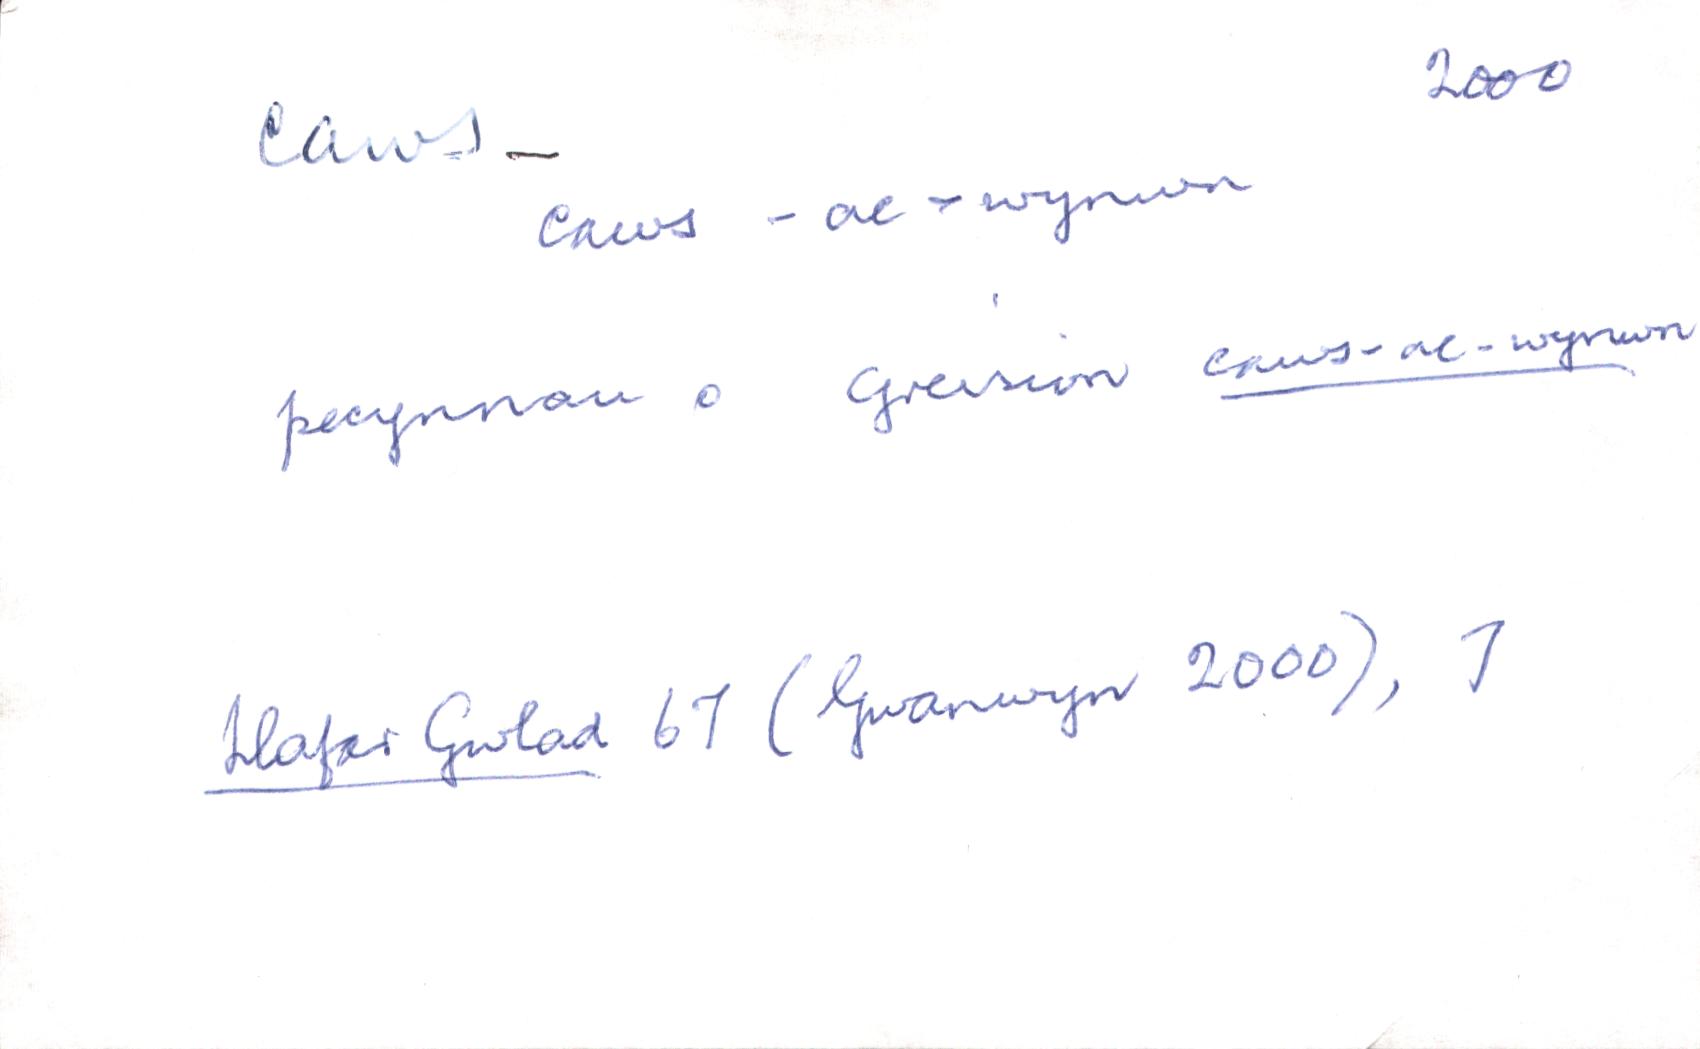 2000
caws-
caws-ac-wynwn
pecynnau o greision caws-ac-wynwn
Llafar Gwlad 67 (Gwanwyn 2000), 7